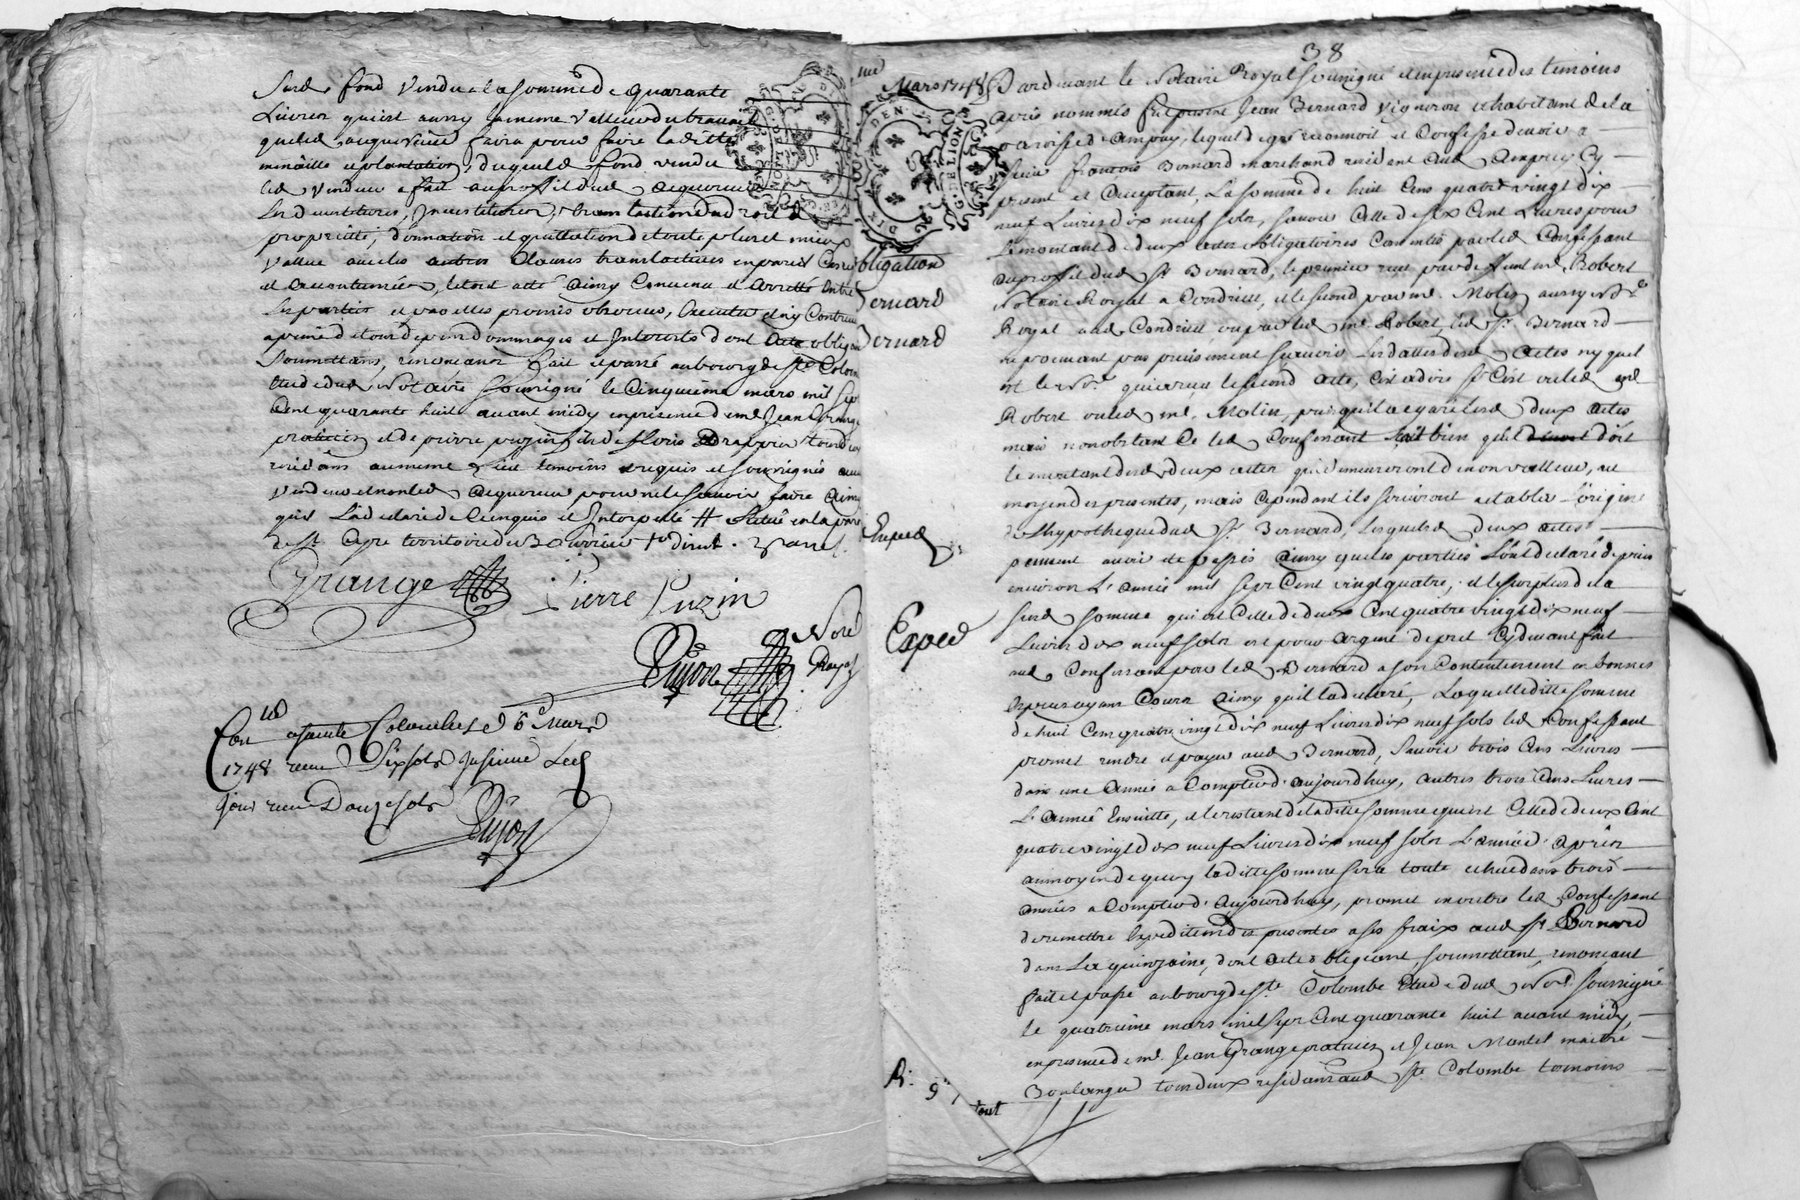 Sud. fond vendu a la somme de quarante
Livres qui est aussy la meme valleur du travail
que led. acquereur faira pour faire laditte
minaille et plantation, duquel fond vendu
led. vendeur a fait au proffit dud. acquereur
les devestitures, investitures, translation du droit de
proprietté, donnation et quittation de toute plus et mieux
vallue avec les autres clauses translatives en pareil cas requis
et accoutumées, le tout a été ainsy convenu et arretté entre
les parties et par elles promis observer, executer et n'y contrevenir
a peine de tous depens dommages et interests dont acte obligeant
soumettant, renonceant fait et passé au bourg de Ste Colombe
Etude dud. Notaire soussigné le cinquieme mars mil sept
cent quarante huit avant midy en presence de me Jean Grange
praticien et de pierre puzin fils de
residans au meme lieu temoins requis et soussignés avec
vendeur et non led. acquereur pour ne le scavoir faire ainsy
qu'il l'a declaré de ce enquis et interpellé # situé en la paroisse
de St Cyre territoire de dit.
Grange Pierre Puzin
Dujon Nore Royal
Con.lé a sainte Colombe le 6e Mars
1748 receu six sols
jour receu Douze sols
Dujon
38
Mars 1748
Obligation
Bernard
Bernard
Exped.
Exped
Pardevant le Notaire Royal soussigné et en presence des temoins
après nommés fut present Jean Bernard vigneron et habitant de la
paroisse d'ampuy, lequel de gré reconnoit et confesse devoir a
sieur françois Bernard marchand residant aud. Ampuy cy
present et acceptant, la somme de huit cens quatre vingt dix
neuf Livres dix neuf sols, scavoir celle de six cent Livres pour
le montant de deux actes obligatoires consentis par led. confessant
au proffit dud. Sr Bernard, le premier receu par deffunt me Robert
Notaire Royal a Condrieu, et le second par me. Molin aussy Nore
Royal aud. Condrieu, ou par led. me Robert, led. Sr. Bernard
ne pouvant pas precisement scavoir les dattes desd. actes ny quel
est le Nore. qui a receu le second acte, c'est a dire si c'est ouled. me
Robert ou led. me. Molin, parce qu'il a egaré lesd. deux actes
mais nonobstant ce led. confessant scait bien qu'il doit
le montant desd. deux actes qui demeureront de non valleur, au
moyen des presentes, mais cependant ils serviront a etablir l'origine
de l'hypotheque dud. Sr. Bernard, lesquels deux actes
peuvent avoir eté passés ainsy que les parties l'ont declaré depuis
environ l'année mil sept cent vingt quatre, et le surplus de la
susd. somme qui est celle de deux cent quatre vingt dix neuf
Livres dix neuf sols est pour argent de pret cy devant fait
aud. confessant par led. Bernard a son contentement en bonnes
especes ayant cours ainsy qu'il la declaré, laquelle ditte somme
de huit cent quatre vingt dix neuf Livres dix neuf sols led. confessant
promet rendre et payer aud. Bernard, scavoir trois cens Livres
dans une année a compter d'aujourdhuy, autres trois cens Livres
l'année ensuitte, et le restant de laditte somme qui est celle de deux cent
quatre vingt dix neuf Livres dix neuf sols l'année d'après
au moyen de quoy laditte somme sera toute echue dans trois
années a compter d'aujourdhuy, promet en outre led. confessant
de remettre expedition des presentes a ses fraix aud. Sr Bernard
dans la quinzaine, dont acte obligeant, soumettant, renonceant
fait et passé au bourg de Ste. Colombe Etude dud. Nore. soussigné
le quatrieme mars mil sept cent quarante huit avant midy,
en presence de me. Jean Grange praticien et Jean Mantel maitre
Boulanger tous deux residans aud. Ste. Colombe temoins